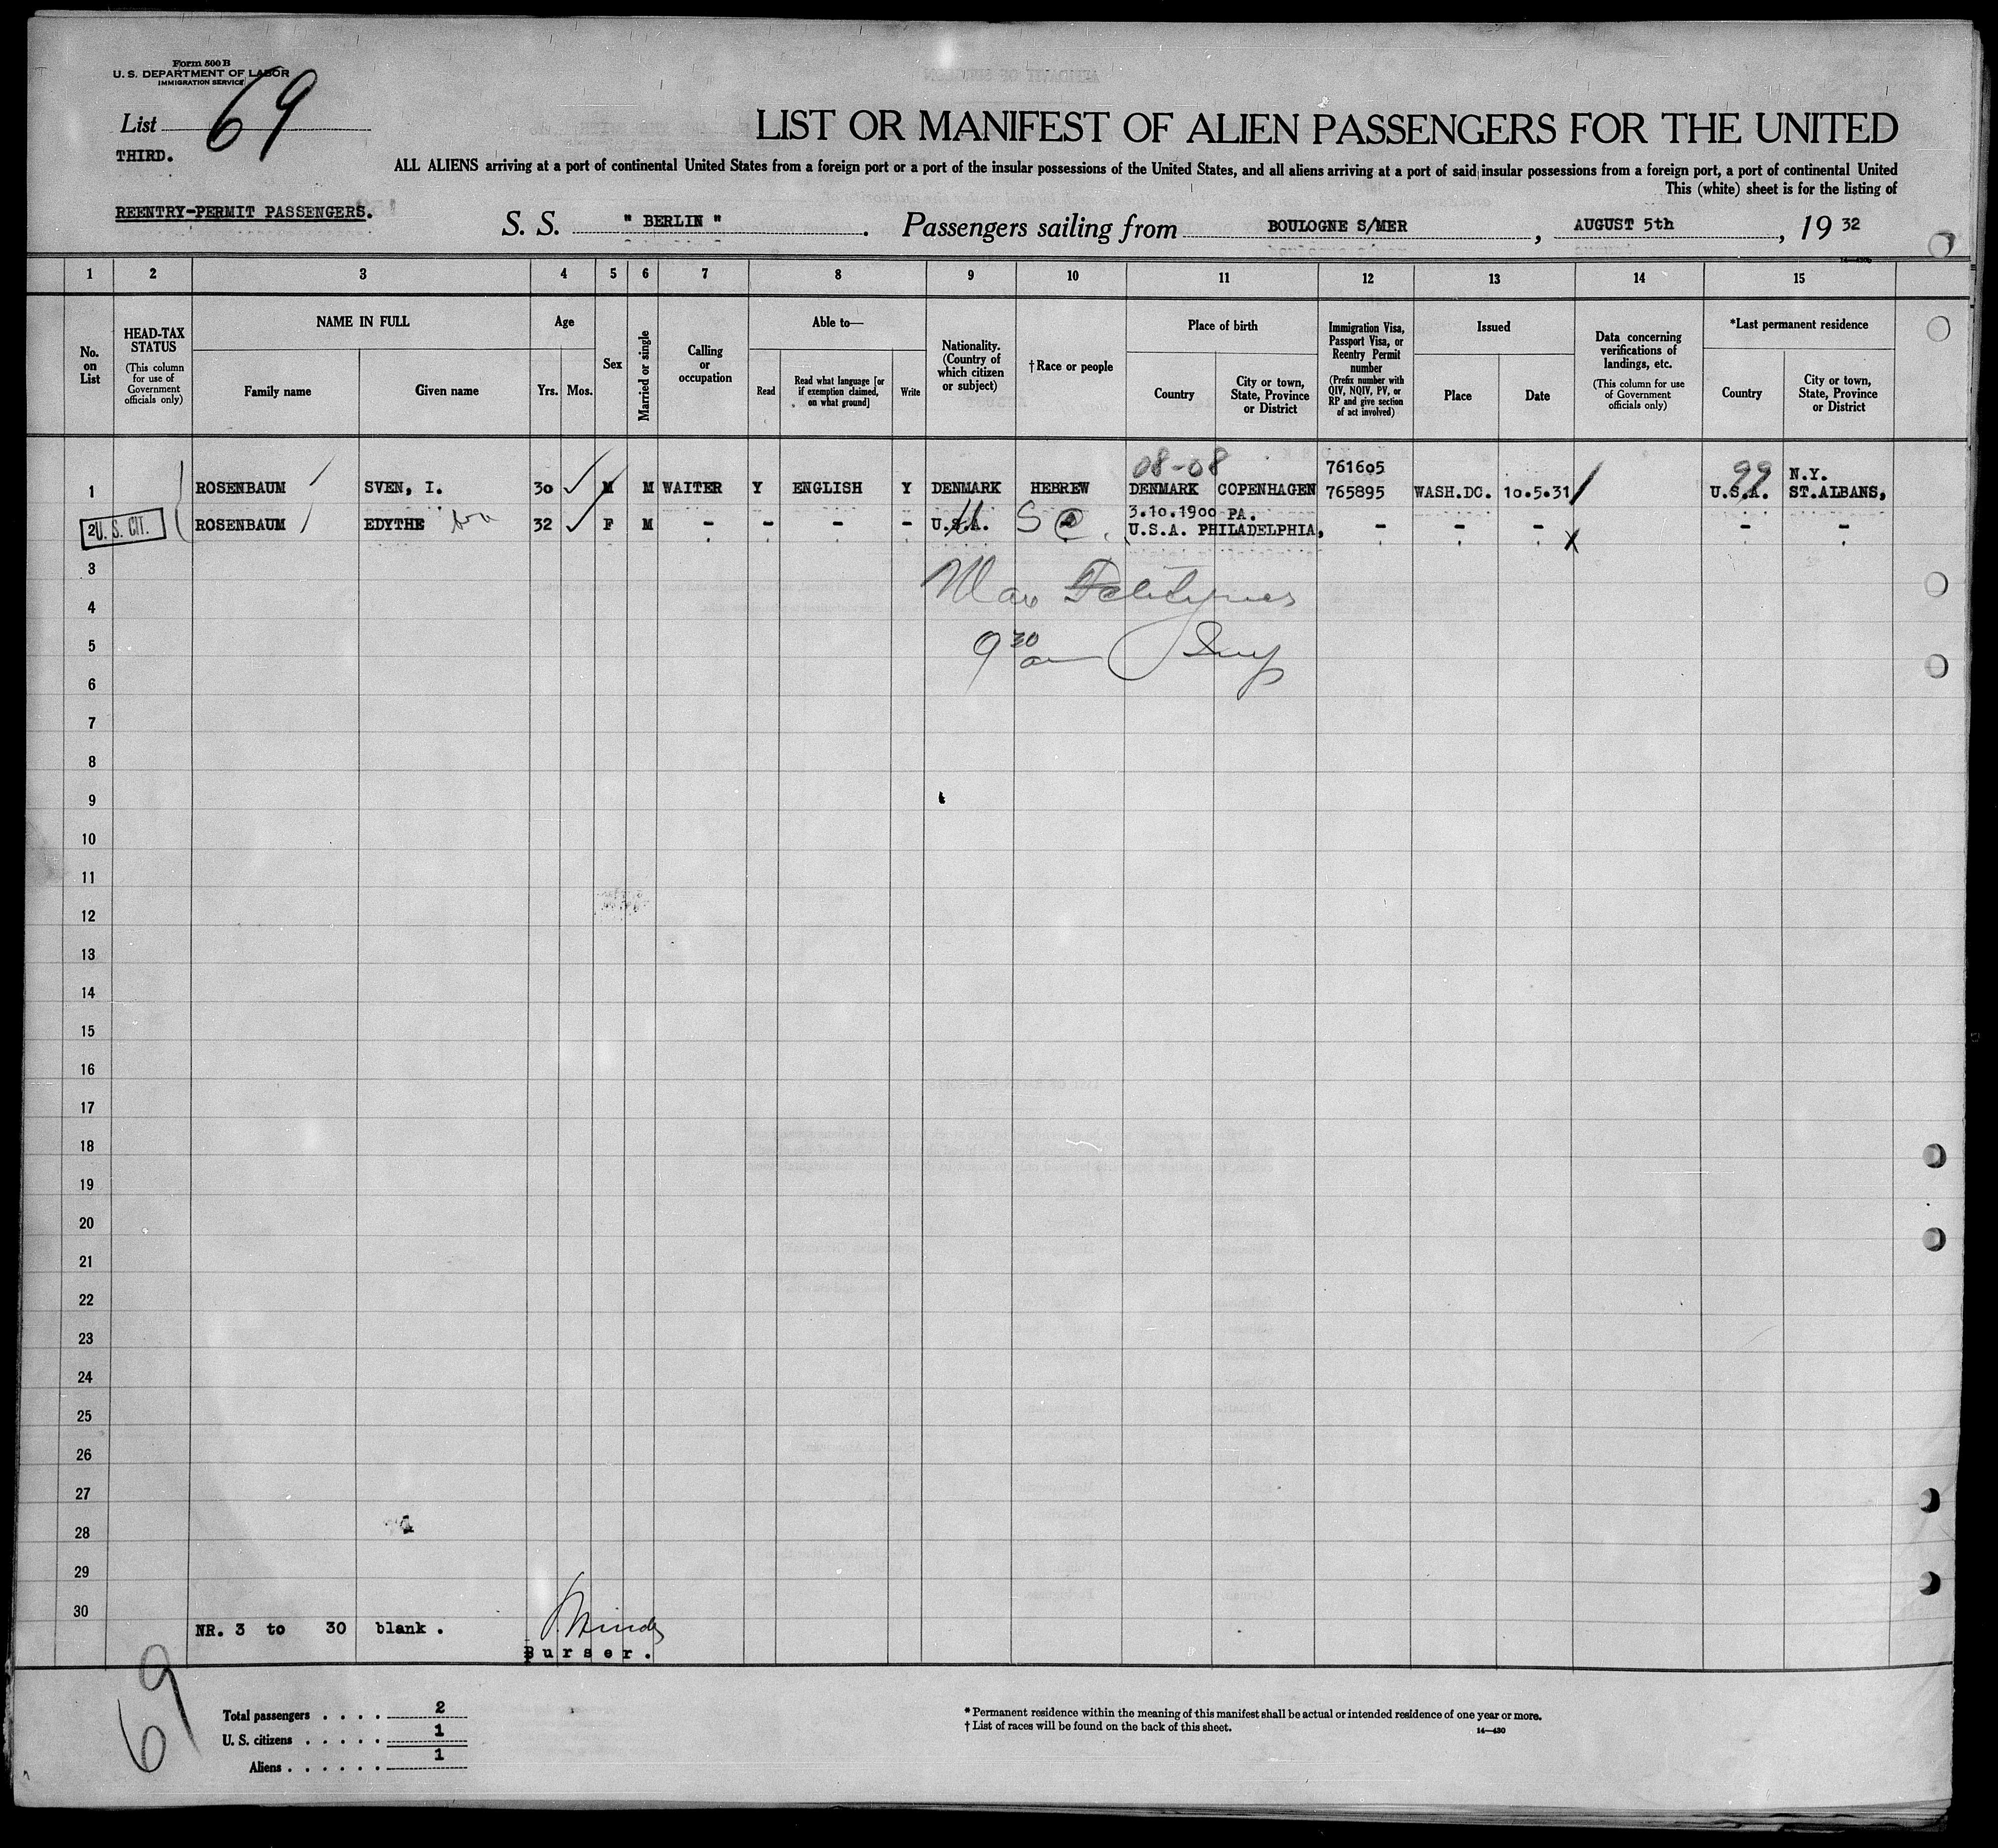 Form 500 B
U. S. DEPARTMENT OF LABOR
IMMIGRATION SERVICE
List 69
THIRD.
LIST OR MANIFEST OF ALIEN PASSENGERS FOR THE UNITED
ALL ALIENS arriving at a port of continental United States from a foreign port or a port of the insular possessions of the United States, and all aliens arriving at a port of said insular possessions from a foreign port, a port of continental United
This (white) sheet is for the listing of
REENTRY-PERMIT PASSENGERS.
S. S. " BERLIN ". Passengers sailing from BOULOGNE S/MER, AUGUST 5th, 19 32
14—430b
1 2 3 4 5 6 7 8 9 10 11 12 13 14 15
No. on List
HEAD-TAX STATUS (This column for use of Government officials only)
NAME IN FULL
Family name Given name
Age
Yrs. Mos.
Sex
Married or single
Calling or occupation
Able to—
Read Read what language [or if exemption claimed, on what ground] Write
Nationality. (Country of which citizen or subject)
† Race or people
Place of birth
Country City or town, State, Province or District
Immigration Visa, Passport Visa, or Reentry Permit number (Prefix number with QIV, NQIV, PV, or RP and give section of act involved)
Issued
Place Date
Data concerning verifications of landings, etc. (This column for use of Government officials only)
*Last permanent residence
Country City or town, State, Province or District
08-08 761605 99 N.Y.
1 ROSENBAUM SVEN, I. 30 M M WAITER Y ENGLISH Y DENMARK HEBREW DENMARK COPENHAGEN 765895 WASH.DC. 10.5.31 U.S.A. ST.ALBANS,
3.10.1900 PA.
2 U. S. CIT. ROSENBAUM EDYTHE 32 F M - - - - U.S.A. - U.S.A. PHILADELPHIA, - - - X - -
3
4
9 30
5
6
7
8
9
10
11
12
13
14
15
16
17
18
19
20
21
22
23
24
25
26
27
28
29
30
NR. 3 to 30 blank.
Burser.
69
Total passengers . . . . 2
U. S. citizens . . . . . 1
Aliens . . . . . . 1
* Permanent residence within the meaning of this manifest shall be actual or intended residence of one year or more.
† List of races will be found on the back of this sheet.
14—430